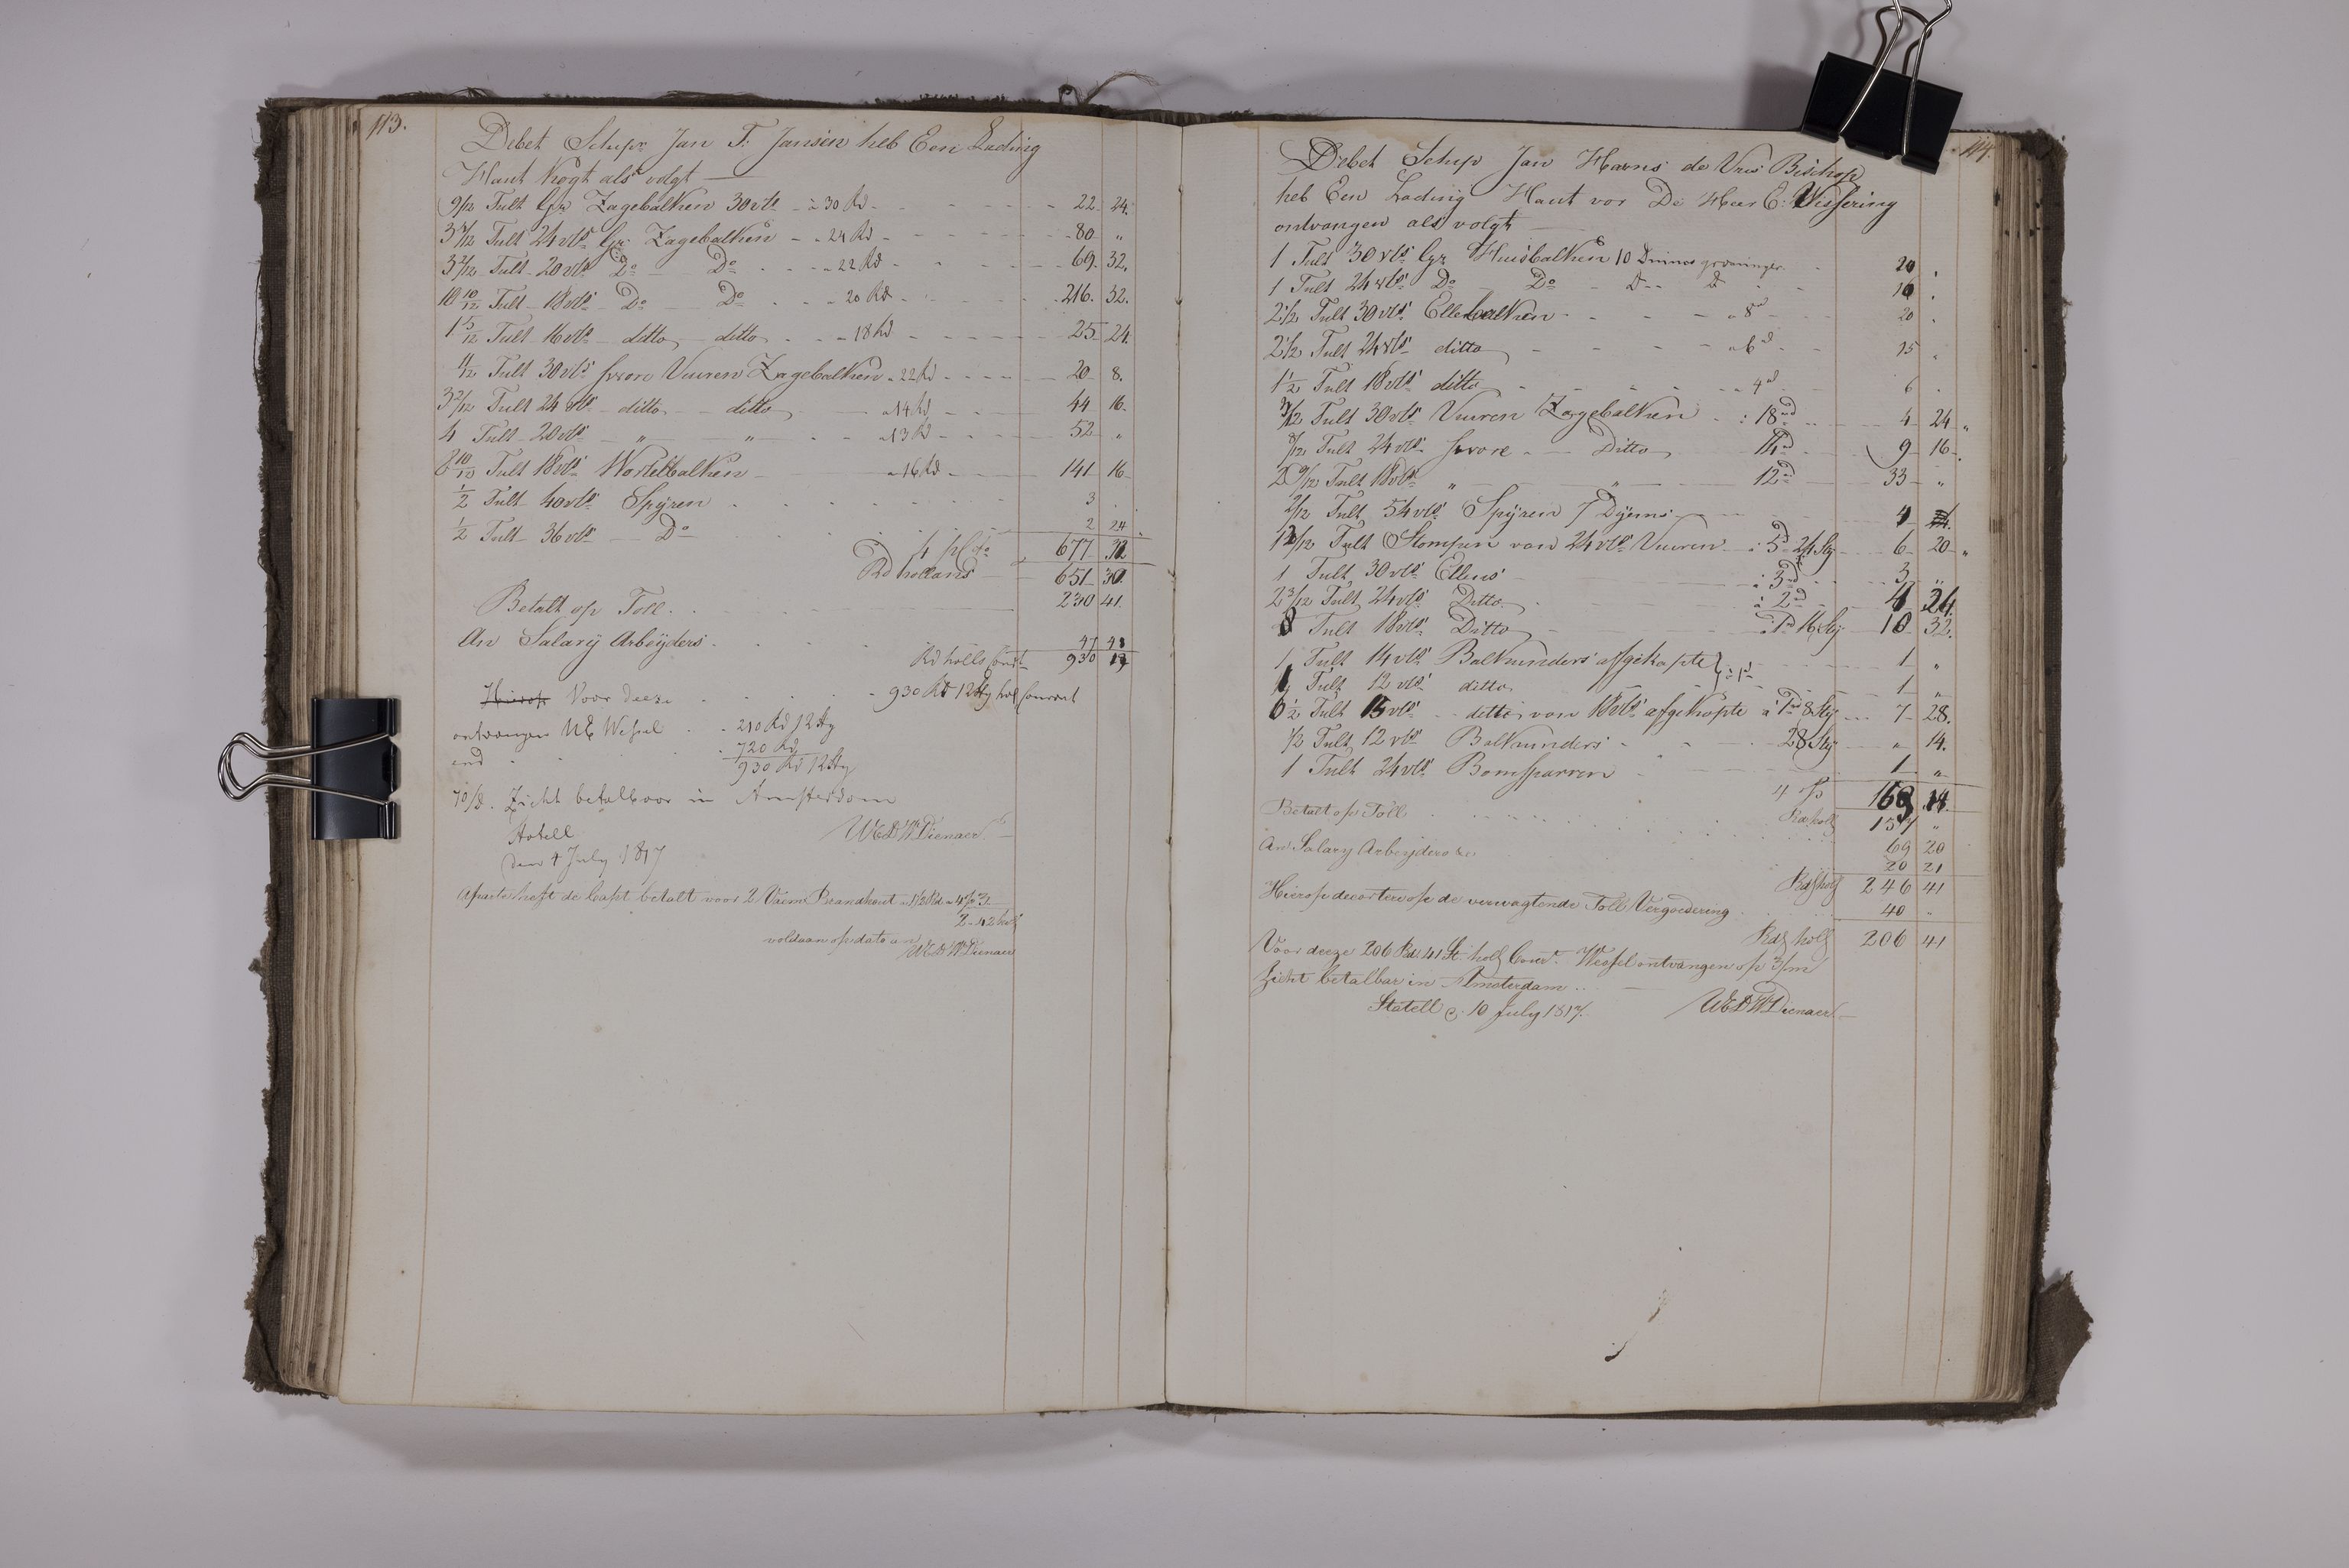 113.
Debet Schipr Jan T: Jansen heb Een Lading
Haut kogt als volgt
9/12 Tult lgr Zagebalken 30 vts a 30 Rd 22 24.
3 4/12 Tult 24 vts lgr Zagebalken 24 Rd 80 "
3 2/12 Tult 20 vts Do Do 22 Rd 69. 32.
10 10/12 Tult 18 vts Do Do 20 Rd 216. 32.
1 5/12 Tult 16 vts ditto ditto 18 Rd 25 24.
11/12 Tult 30 vts Vuuren Zagebalken 22 Rd 20 8.
3 2/12 Tult 24 vts ditto ditto 14 Rd 44 16
4 Tult 20 vts " " 13 Rd 52 "
8 10/12 Tult 18 vts Wortelbalken 16 Rd 141 16
1/2 Tult 40 vts Spyren 3
1/2 Tult 36 vts Do 2 24
4 pCto 677 32
Rd hollans 651 30.
Betalt op Toll 230 41.
An Salarij Arbeijders 47 43
Rd holls Court 930
Hierop Voor deeze 930 Rd 12 Sty hol Courant
ontvangen Wessel 210 Rd 12 Sty
end 720 Rd
930 Rd 12 Sty
Zicht betalbaar in Amsterdam
Statell WEDWDienaer
den 4 July 1817
Aparte heeft de Capt betalt voor 2 Vaem Brandhout
2 - 42 hols
voldaan op dato an
WEDWDienaer
114.
Debet Schip Jan Harns de Vries Bischop
heb Een Lading Haut vor De Heer E: Vissering
ontvangen als volgt
1 Tult 30 vts lgr Huisbalken 10 groninger 20 "
1 Tult 24 vts Do Do D D 16
2 1/2 Tult 30 vts Ellebalken 8 20
2 1/2 Tult 24 vts ditto 6 15 "
1 1/2 Tult 18 vts ditto 4 6
3/12 Tult 30 vts Vuuren Zagebalken 18 4 24 "
8/12 Tult 24 vts Ditto 14 9 16
2 9/12 Tult 18 vts " " 12 33 "
2/12 Tult 54 vts Spyren 7 Dyems 4
Tult Stompen van 24 vts Vuuren 5 24 Sty 6 20 "
1 Tult 30 vts Ellens a 3 3 "
2 3/12 Tult 24 vts Ditto a 2 4 24.
8 Tult 18 vts Ditto 1 16 Sty 10 32.
1 Tult 14 vts Balkunders afgekapte 1 "
1 Tult 12 vts ditto 1 "
6 1/2 Tult 15 vts ditto van 18 vts afgekapte a 1 8 Sty 7 28.
1/2 Tult 12 vts Balkunders 28 Sty " 14.
1 Tult 24 vts Bomsparren 1 "
4 p 163 14.
Betalt op Toll Rds hols 157 "
69 20
An Salary Arbeyders &c. 20 21
Rds hols 246 41
Hierop decorteren op de verwagtende Toll Vergoedering 40 "
Rds hols 206 41
Voor deeze 206 Rd 41 St. hols Court. Wessel ontvangen op 3/m
Zicht betalbar in Amsterdam
Statell d. 10 July 1817. WEDWDienaer